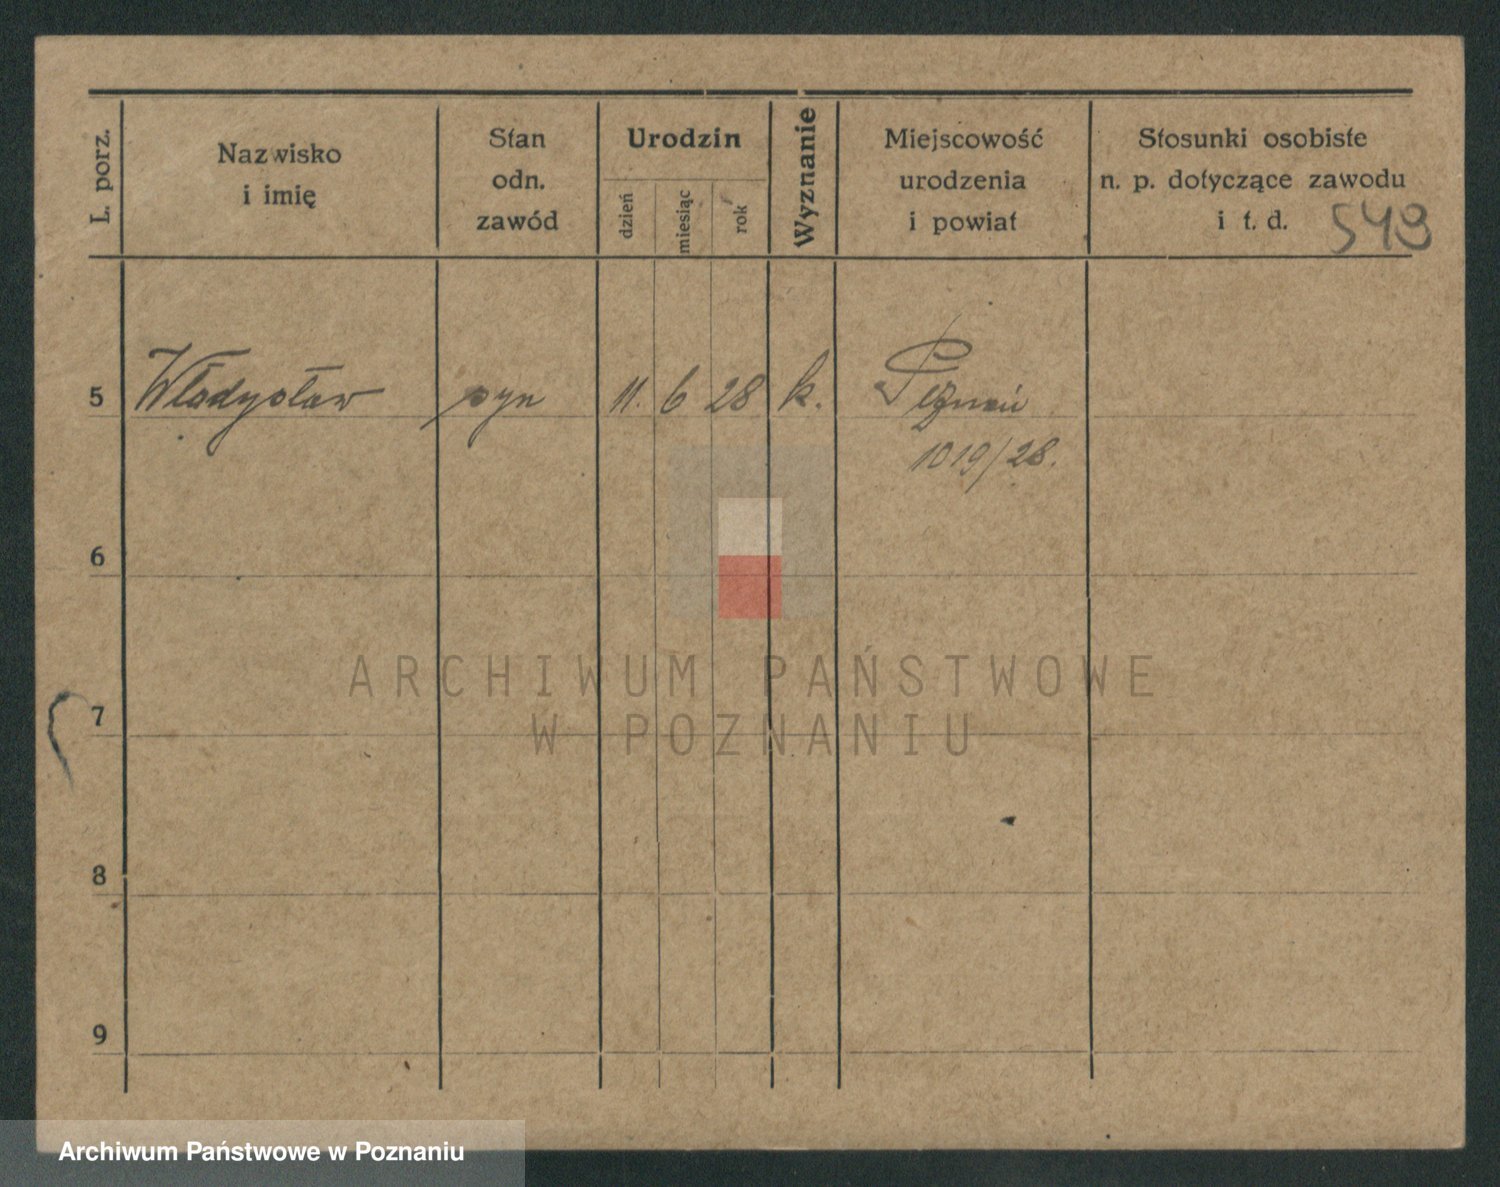 L. porz.
Nazwisko
i imię
Stan
odn.
zawód
Urodzin
dzień
miesiąc
rok
Wyznanie
Miejscowość
urodzenia
i powiat
Stosunki osobiste
n. p. dotyczące zawodu
i t. d.
549
5 Władysław syn 11. 6 28 k. Poznań
1019/28.
6
7
8
9
ARCHIWUM PAŃSTWOWE
W POZNANIU
Archiwum Państwowe w Poznaniu